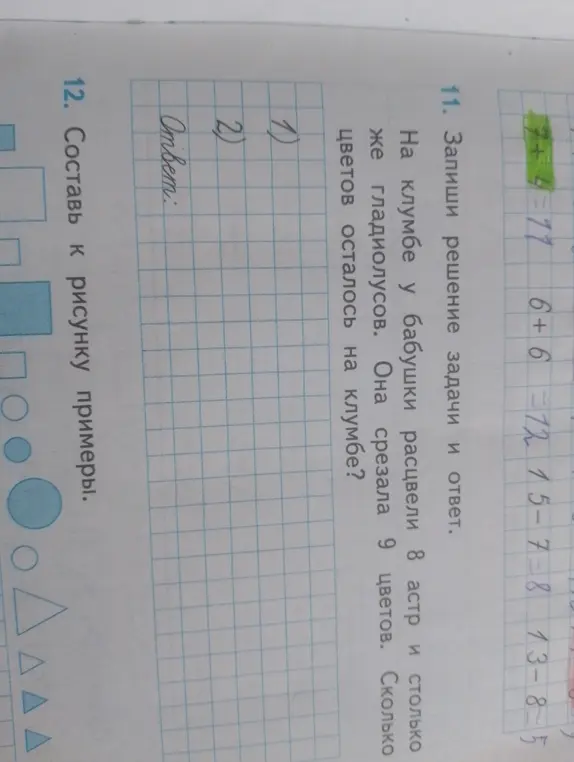 7 + 4 = 11 6 + 6 = 12 15 - 7 = 8 13 - 8 = 5
11. Запиши решение задачи и ответ.
На клумбе у бабушки расцвели 8 астр и столько
же гладиолусов. Она срезала 9 цветов. Сколько
цветов осталось на клумбе?
1)
2)
Ответ:
12. Составь к рисунку примеры.